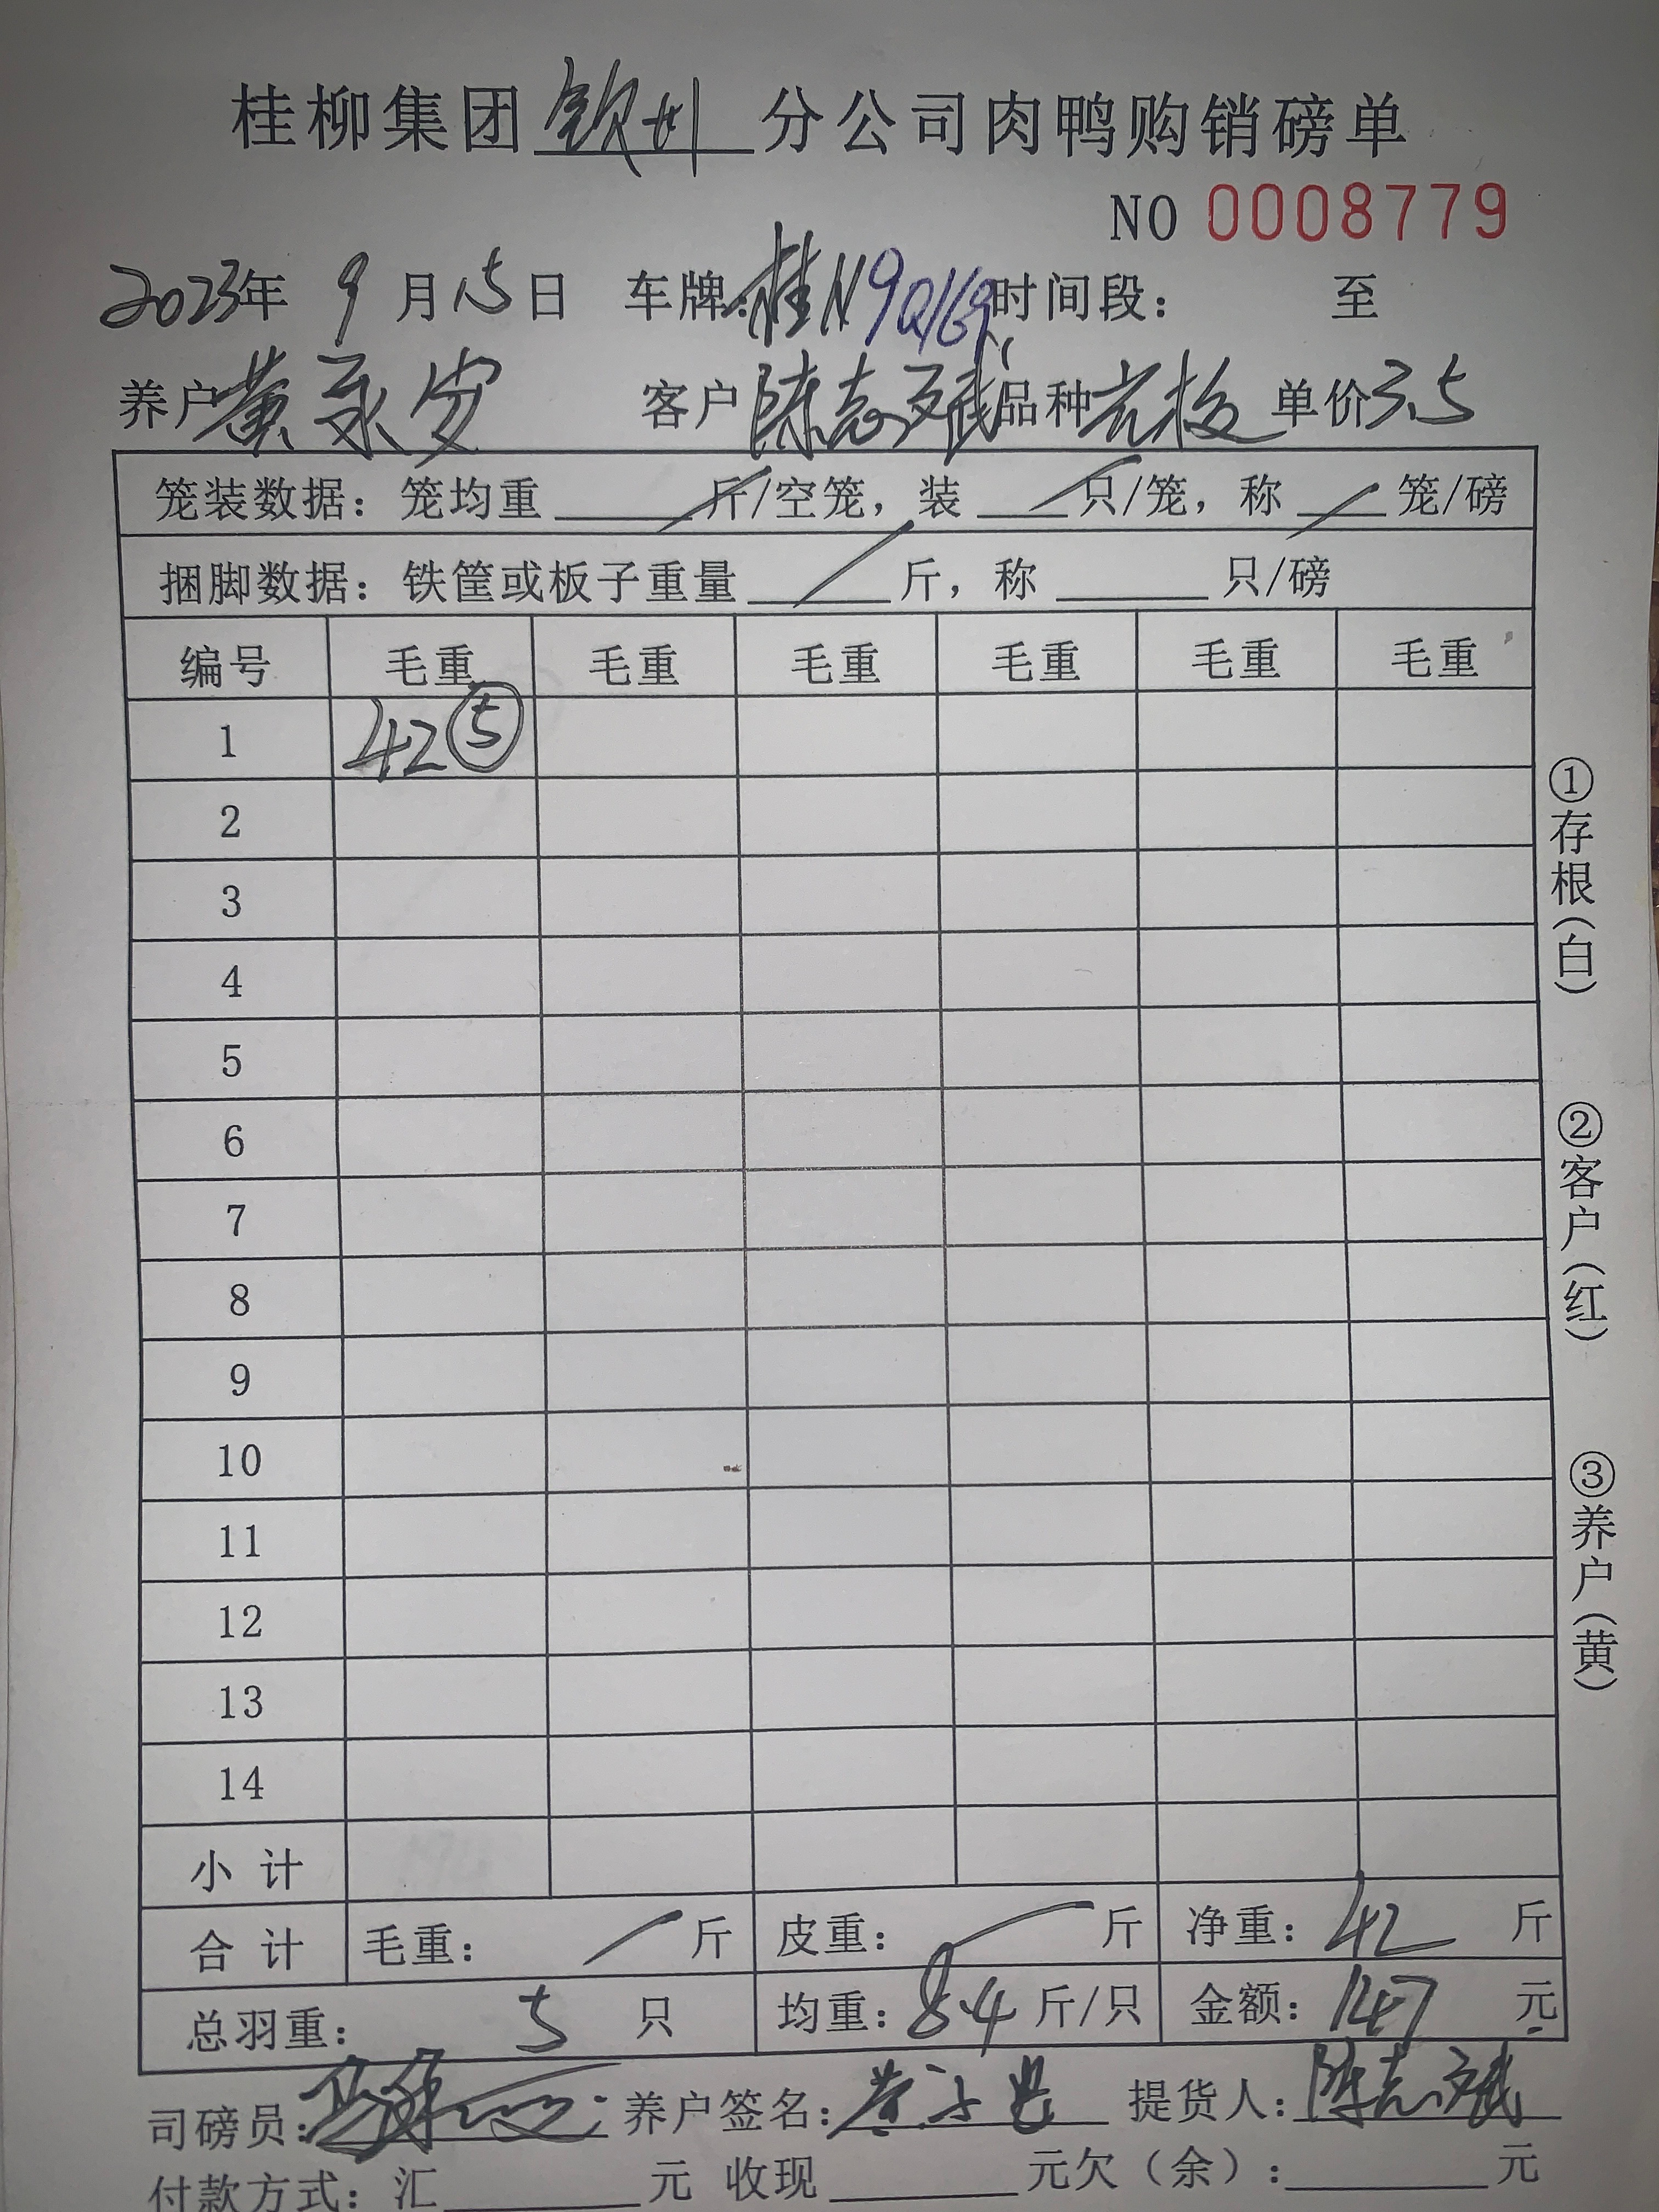 桂柳集团钦州分公司肉鸭购销磅单
NO 0008779
2023年 9 月 15 日 车牌：桂N9Q 时间段： 至
养户 黄 客户 陈志斌 品种 单价 3.5
笼装数据：笼均重 斤/空笼，装 只/笼，称 笼/磅
捆脚数据：铁筐或板子重量 斤，称 只/磅
编号 毛重 毛重 毛重 毛重 毛重 毛重
1 42 ⑤
2
3
4
5
6
7
8
9
10
11
12
13
14
小 计
合 计 毛重： 斤 皮重： 斤 净重：42 斤
总羽重： 5 只 均重：8.4 斤/只 金额：147 元
司磅员： 养户签名：黄 提货人：陈志斌
付款方式：汇 元 收现 元欠（余）： 元
①存根（白）
②客户（红）
③养户（黄）